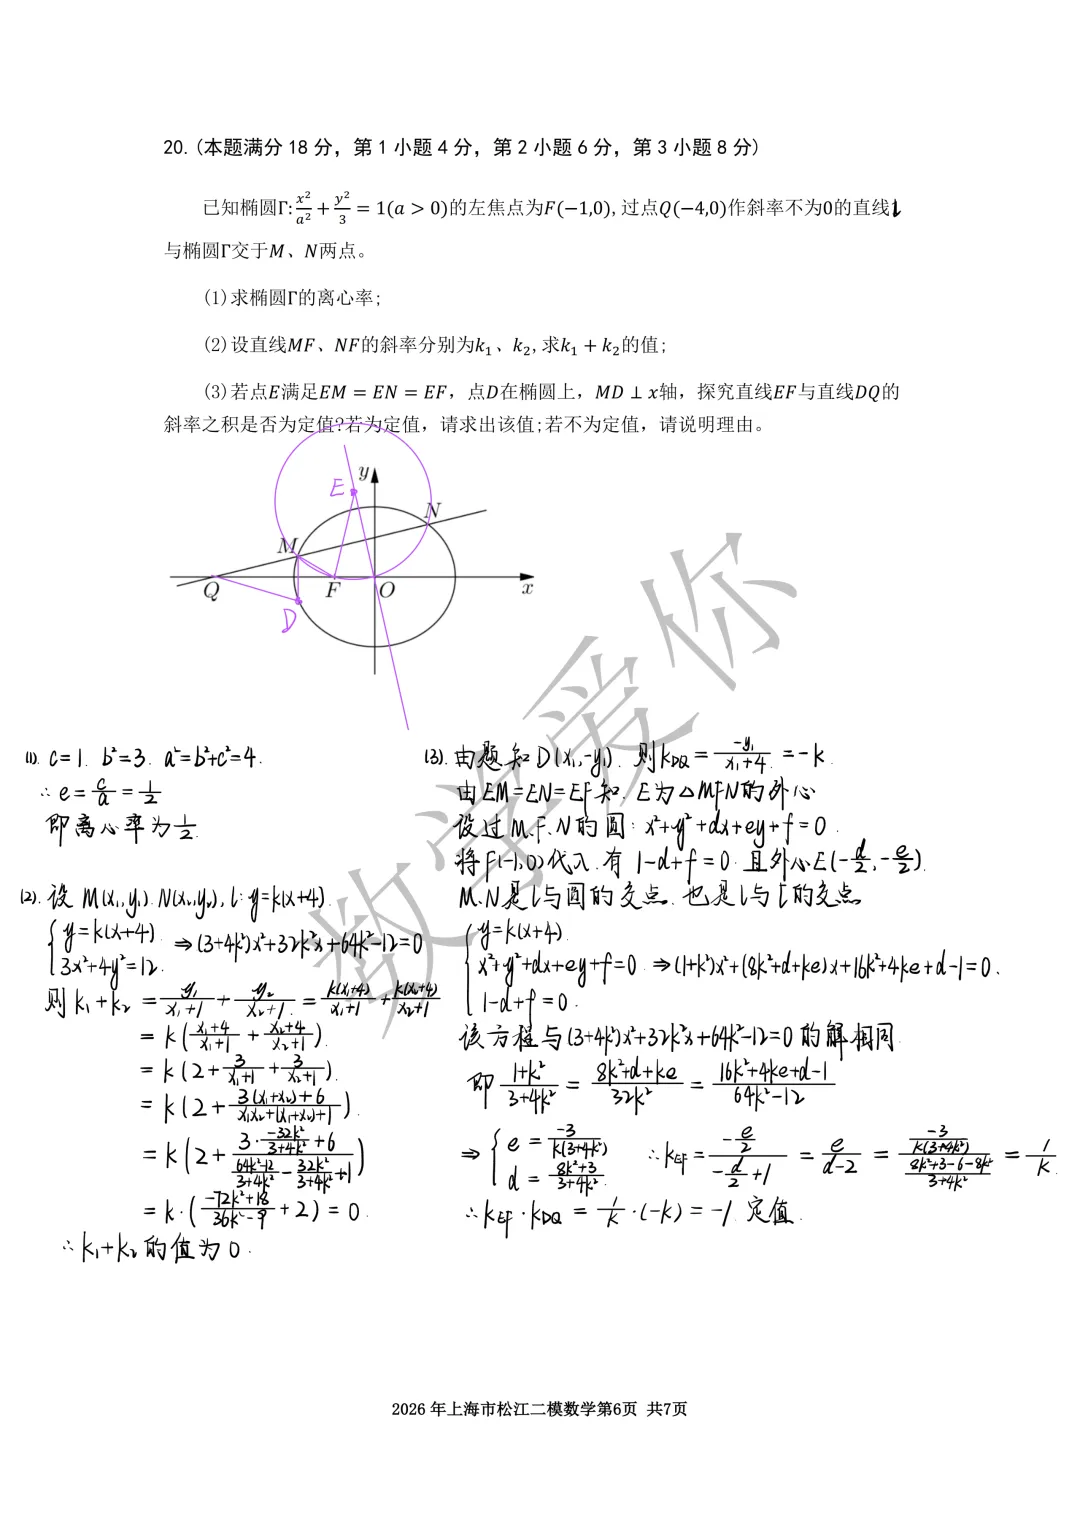 20.(本题满分 18 分，第 1 小题 4 分，第 2 小题 6 分，第 3 小题 8 分)
已知椭圆Γ: x²/a² + y²/3 = 1(a > 0)的左焦点为F(−1,0),过点Q(−4,0)作斜率不为0的直线l
与椭圆Γ交于M、N两点。
(1)求椭圆Γ的离心率;
(2)设直线MF、NF的斜率分别为k₁、k₂,求k₁ + k₂的值;
(3)若点E满足EM = EN = EF，点D在椭圆上，MD ⊥ x轴，探究直线EF与直线DQ的
斜率之积是否为定值?若为定值，请求出该值;若不为定值，请说明理由。
y
E
N
M
Q
F
O
x
D
数学爱你
(1). c=1. b²=3. a²=b²+c²=4.
∴ e = c/a = 1/2
即离心率为 1/2.
(2). 设 M(x₁,y₁). N(x₂,y₂), l: y=k(x+4).
{ y=k(x+4). 3x²+4y²=12. ⇒ (3+4k²)x²+32k²x+64k²-12=0
则 k₁+k₂ = y₁/(x₁+1) + y₂/(x₂+1) = k(x₁+4)/(x₁+1) + k(x₂+4)/(x₂+1)
= k((x₁+4)/(x₁+1) + (x₂+4)/(x₂+1)).
= k(2 + 3/(x₁+1) + 3/(x₂+1)).
= k(2 + (3(x₁+x₂)+6)/(x₁x₂+(x₁+x₂)+1)).
= k(2 + (3·(-32k²)/(3+4k²)+6)/((64k²-12)/(3+4k²) - 32k²/(3+4k²) +1))
= k·((-72k²+18)/(36k²-9) + 2) = 0.
∴ k₁+k₂ 的值为 0.
(3). 由题知 D(x₁,-y₁). 则 k_DQ = -y₁/(x₁+4) = -k.
由 EM=EN=EF知. E为△MFN的外心
设过 M.F.N 的圆: x²+y²+dx+ey+f=0.
将 F(-1,0)代入.有 1-d+f=0. 且外心E(-d/2, -e/2).
M.N是l与圆的交点. 也是l与Γ的交点
{ y=k(x+4). x²+y²+dx+ey+f=0. 1-d+f=0. ⇒ (1+k²)x²+(8k²+d+ke)x+16k²+4ke+d-1=0.
该方程与(3+4k²)x²+32k²x+64k²-12=0 的解相同
即 (1+k²)/(3+4k²) = (8k²+d+ke)/(32k²) = (16k²+4ke+d-1)/(64k²-12)
⇒ { e = -3/(k(3+4k²)) d = (8k²+3)/(3+4k²). ∴ k_EF = (-e/2)/(-d/2+1) = e/(d-2) = (-3/(k(3+4k²)))/((8k²+3-6-8k²)/(3+4k²)) = 1/k
∴ k_EF·k_DQ = 1/k·(-k) = -1. 定值.
2026 年上海市松江二模数学第6页 共7页